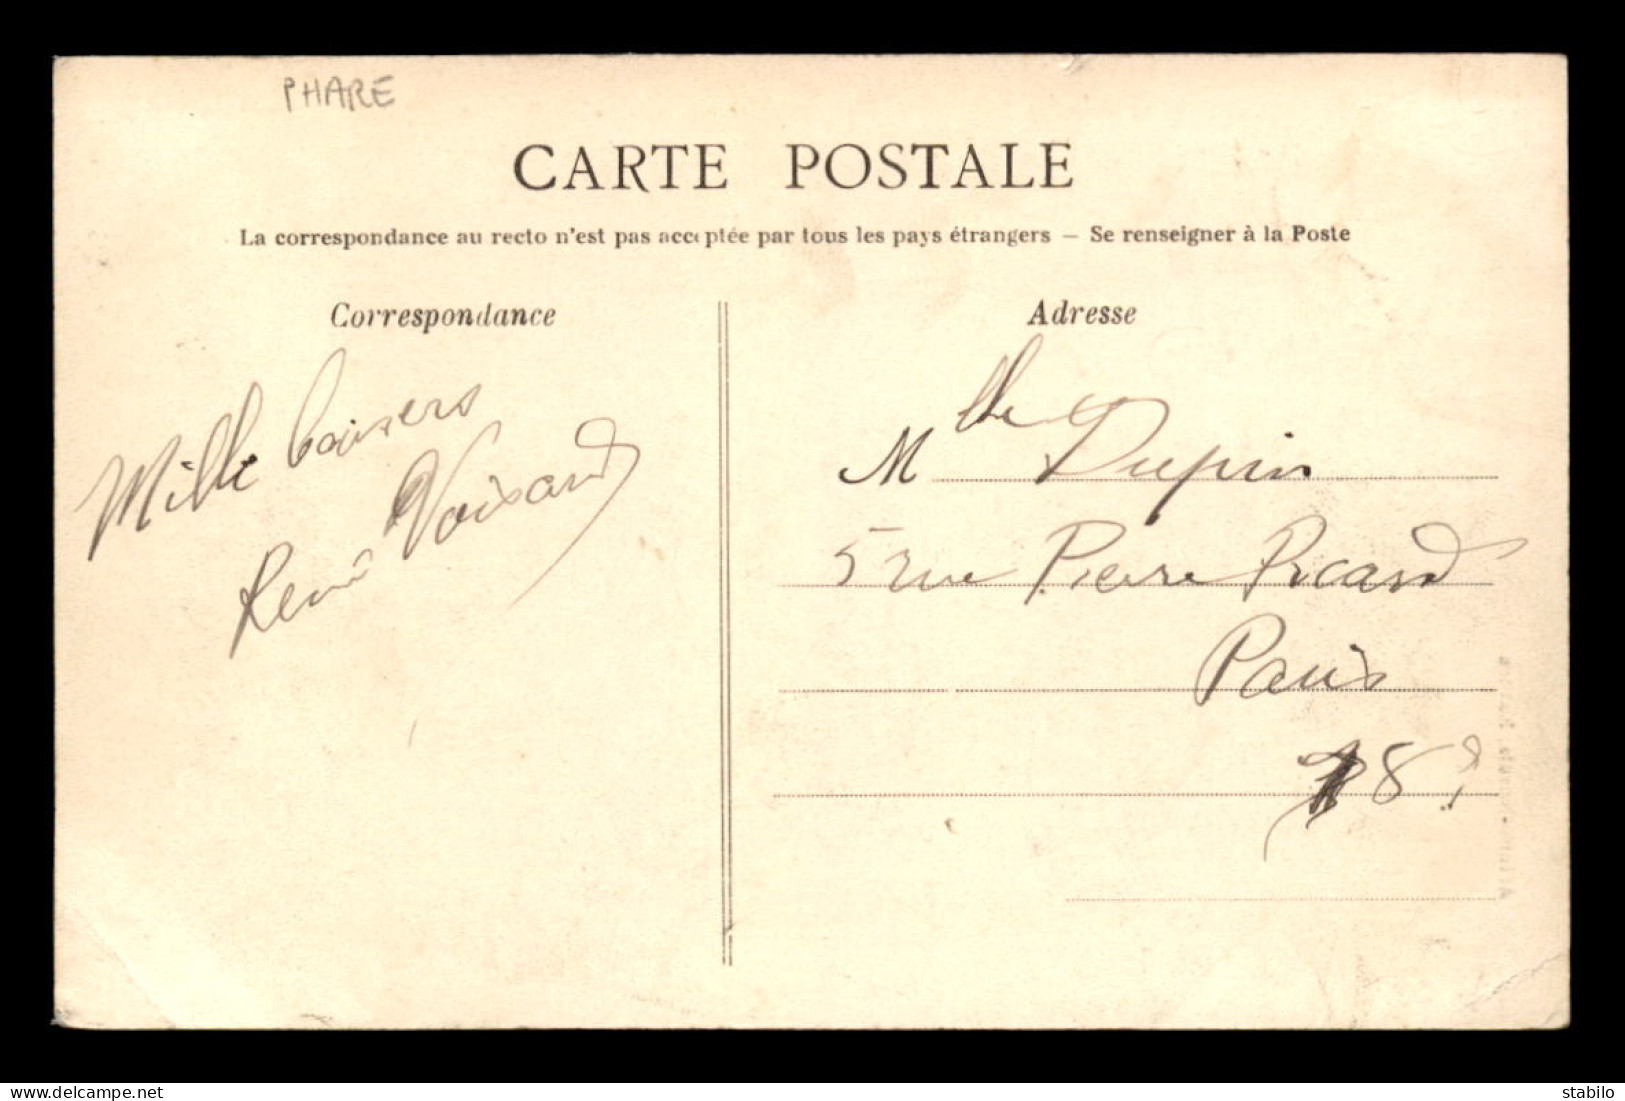 PHARE
CARTE POSTALE
La correspondance au recto n'est pas acceptée par tous les pays étrangers — Se renseigner à la Poste
Correspondance
Mille baisers
René Voisard
Adresse
Mlle Dupin
5 rue Pierre Picard
Paris
18e
delcampe.net
stabilo